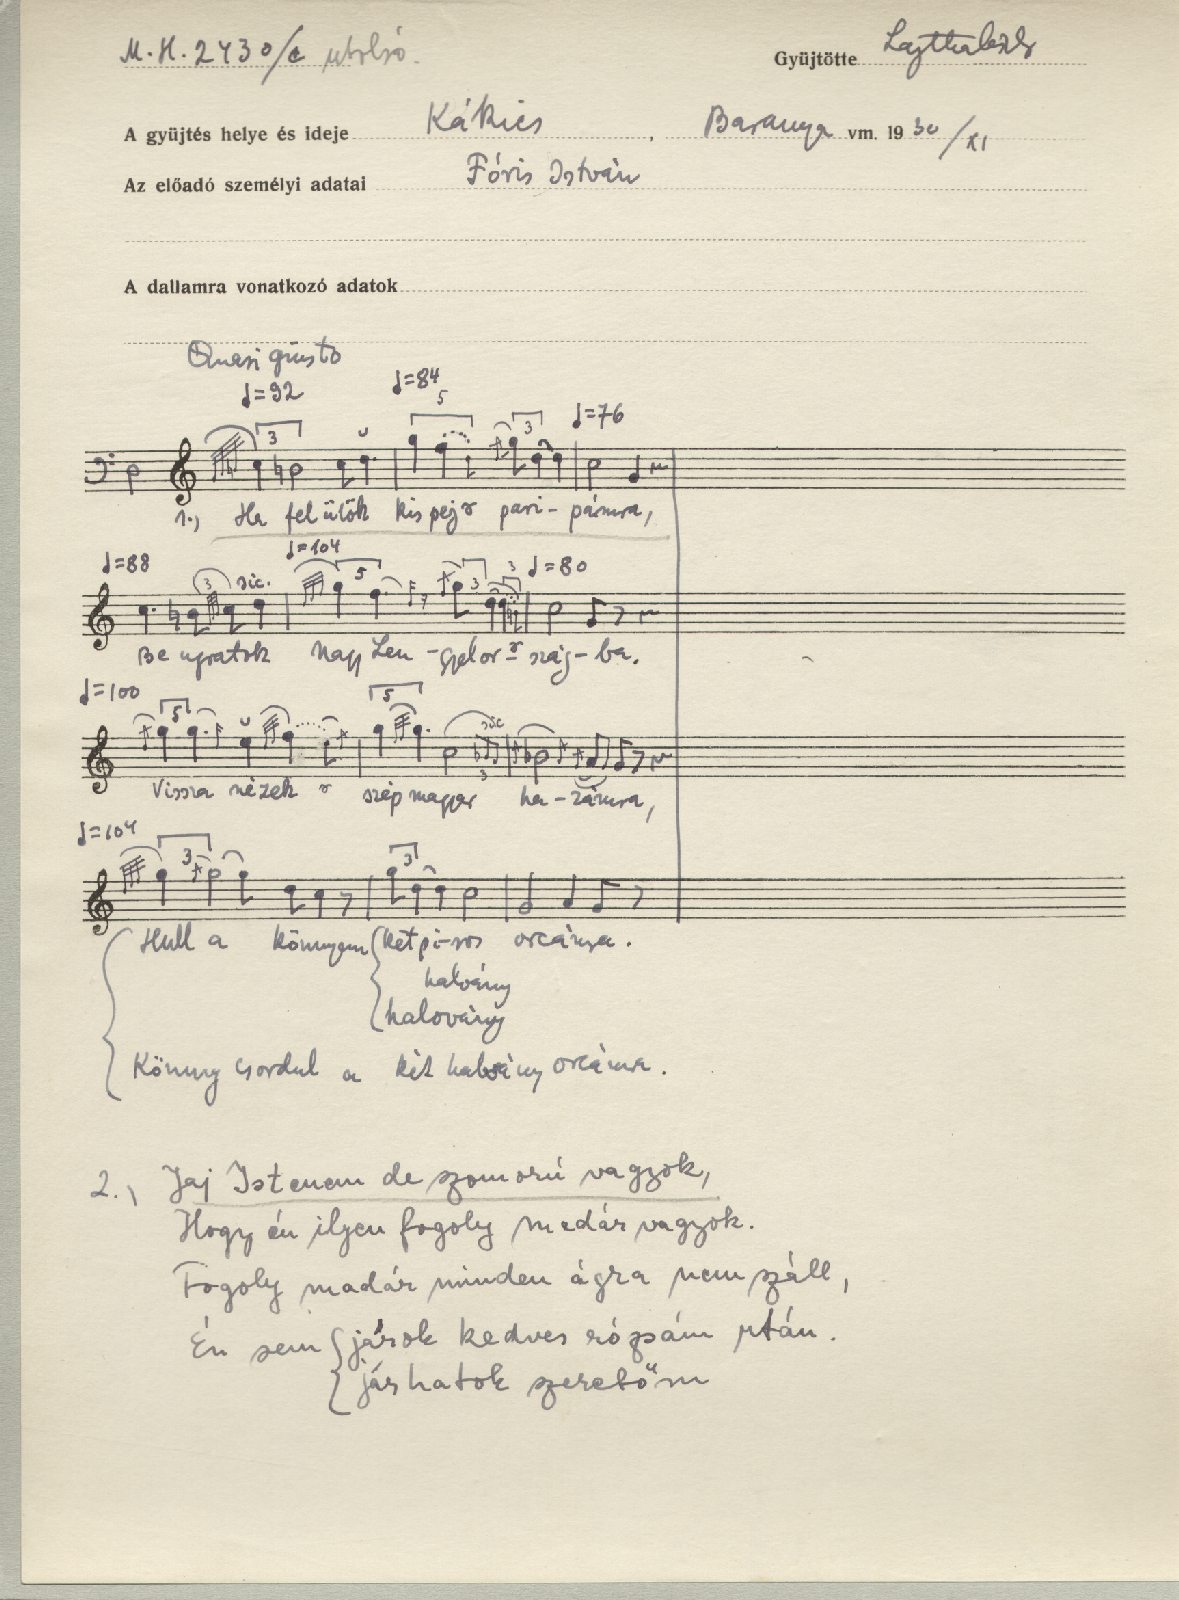 M.H. 2430/c utolsó.
Gyüjtötte Lajtha László
A gyüjtés helye és ideje Kákics, Baranya vm. 1930/XI
Az előadó személyi adatai Fóris István
A dallamra vonatkozó adatok
Quasi giusto
♩=92 ♩=84 ♩=76
3 5 3
1., Ha fel ülök kis pej ő pari-pámra,
♩=88 ♩=104 ♩=80
3 sic. 5 3 3
Be ugratok Nagy Len-gyelor-szág-ba.
♩=100
5 5 sic 3
Vissza nézek szép magyar ha-zámra,
♩=104
3 3
Hull a könnyem két pi-ros orcámra.
halvány
halovány
Könny csordul a két halvány orcámra.
2., Jaj Istenem de szomorú vagyok,
Hogy én ilyen fogoly madár vagyok.
Fogoly madár minden ágra nem száll,
Én sem járok kedves rózsám után.
járhatok szeretőm